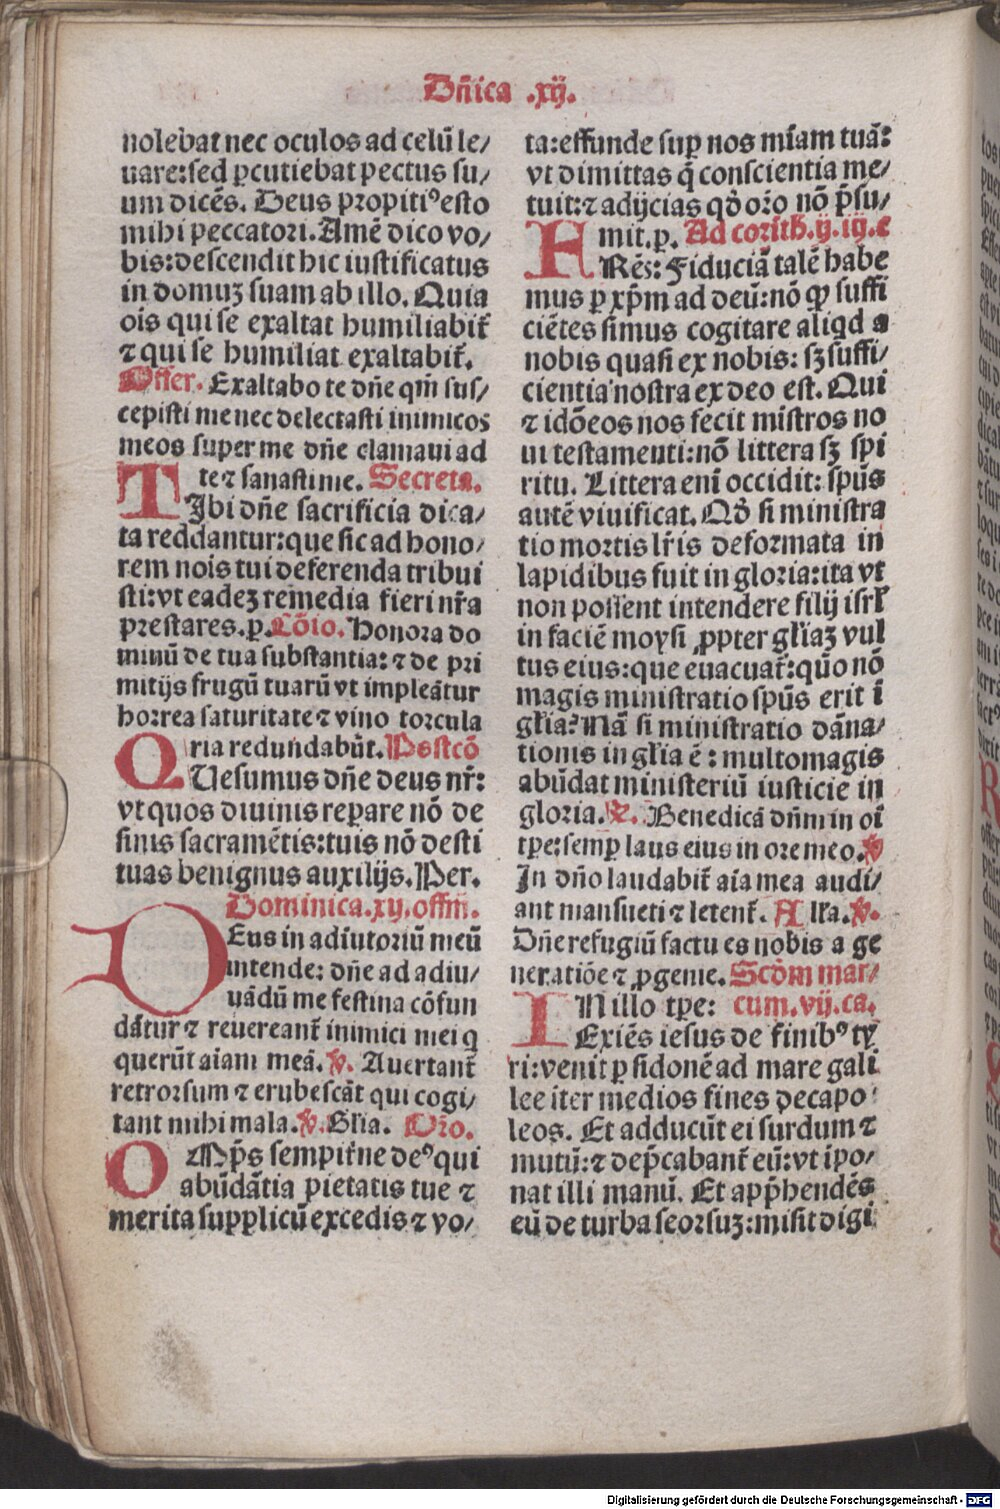 Dñica .xij.
nolebat nec oculos ad celū le/
uare:sed ꝑcutiebat pectus su/
um dicēs. Deus propitiꝰ esto
mihi peccatori. Amē dico vo/
bis:descendit hic iustificatus
in domuꝫ suam ab illo. Quia
oīs qui se exaltat humiliabit̄
⁊ qui se humiliat exaltabit̄.
Offer. Exaltabo te dñe qm̄ sus/
cepisti me nec delectasti inimicos
meos super me dñe clamaui ad
te ⁊ sanasti me. Secreta.
TIbi dñe sacrificia dica/
ta reddantur:que sic ad hono/
rem noīs tui deferenda tribui
sti:vt eadeꝫ remedia fieri nr̄a
prestares.p. Cōio. Honora do
minū de tua substantia: ⁊ de pri
mitijs frugū tuarū vt impleātur
horrea saturitate ⁊ vino torcula
ria redundabūt. Postcō
QUesumus dñe deus nr̄:
vt quos diuinis reꝑare nō de
sinis sacramētis:tuis nō desti
tuas benignus auxilijs. Per.
Dominica.xij.offm̄.
DEus in adiutoriū meū
intende: dñe ad adiu/
uādū me festina cōfun
dātur ⁊ reuereant̄ inimici mei q
querūt aiam meā. ℣. Auertant̄
retrorsum ⁊ erubescāt qui cogi/
tant mihi mala. ℣. Gľia. Oro.
OMp̄s sempit̄ne deꝰ qui
abūdātia pietatis tue ⁊
merita supplicū excedis ⁊ vo/
ta:effunde suꝑ nos mīam tuā:
vt dimittas q̄ conscientia me/
tuit:⁊ adijcias qď oro nō p̄su/
mit.p. Ad corīth.ij.iij.c
FRēs: Fiduciā talē habe
mus ꝑ xp̄m ad deū:nō ꝙ suffi
ciētes simus cogitare aliqd a
nobis quasi ex nobis: sꝫ suffi/
cientia nostra ex deo est. Qui
⁊ idōeos nos fecit mīstros no
ui testamenti:nō littera sꝫ spi
ritu. Littera eni occidit: spūs
autē viuificat. Qď si ministra
tio mortis lr̄is deformata in
lapidibus fuit in gloria:ita vt
non possent intendere filij isrľ
in faciē moysi ꝓpter gľiaꝫ vul
tus eius:que euacuat̄:quō nō
magis ministratio spūs erit ī
gľia? Nā si ministratio dāna/
tionis in gľia ē: multomagis
abūdat ministeriū iusticie in
gloria. ℟. Benedicā dñm in oī
tꝑe:semꝑ laus eius in ore meo. ℣
In dño laudabit̄ aia mea audi/
ant mansueti ⁊ letent̄. Alľa. ℣.
Dñe refugiū factu es nobis a ge
neratiōe ⁊ ꝓgenie. Scďm mar/
cum.vij.ca.
IN illo tꝑe:
Exiēs iesus de finibꝰ ty
ri:venit ꝑ sidonē ad mare gali
lee iter medios fines decapo
leos. Et adducūt ei surdum ⁊
mutū:⁊ dep̄cabant̄ eū:vt ipo/
nat illi manū. Et app̄hendēs
eū de turba seorsuꝫ:misit digi
Digitalisierung gefördert durch die Deutsche Forschungsgemeinschaft - DFG